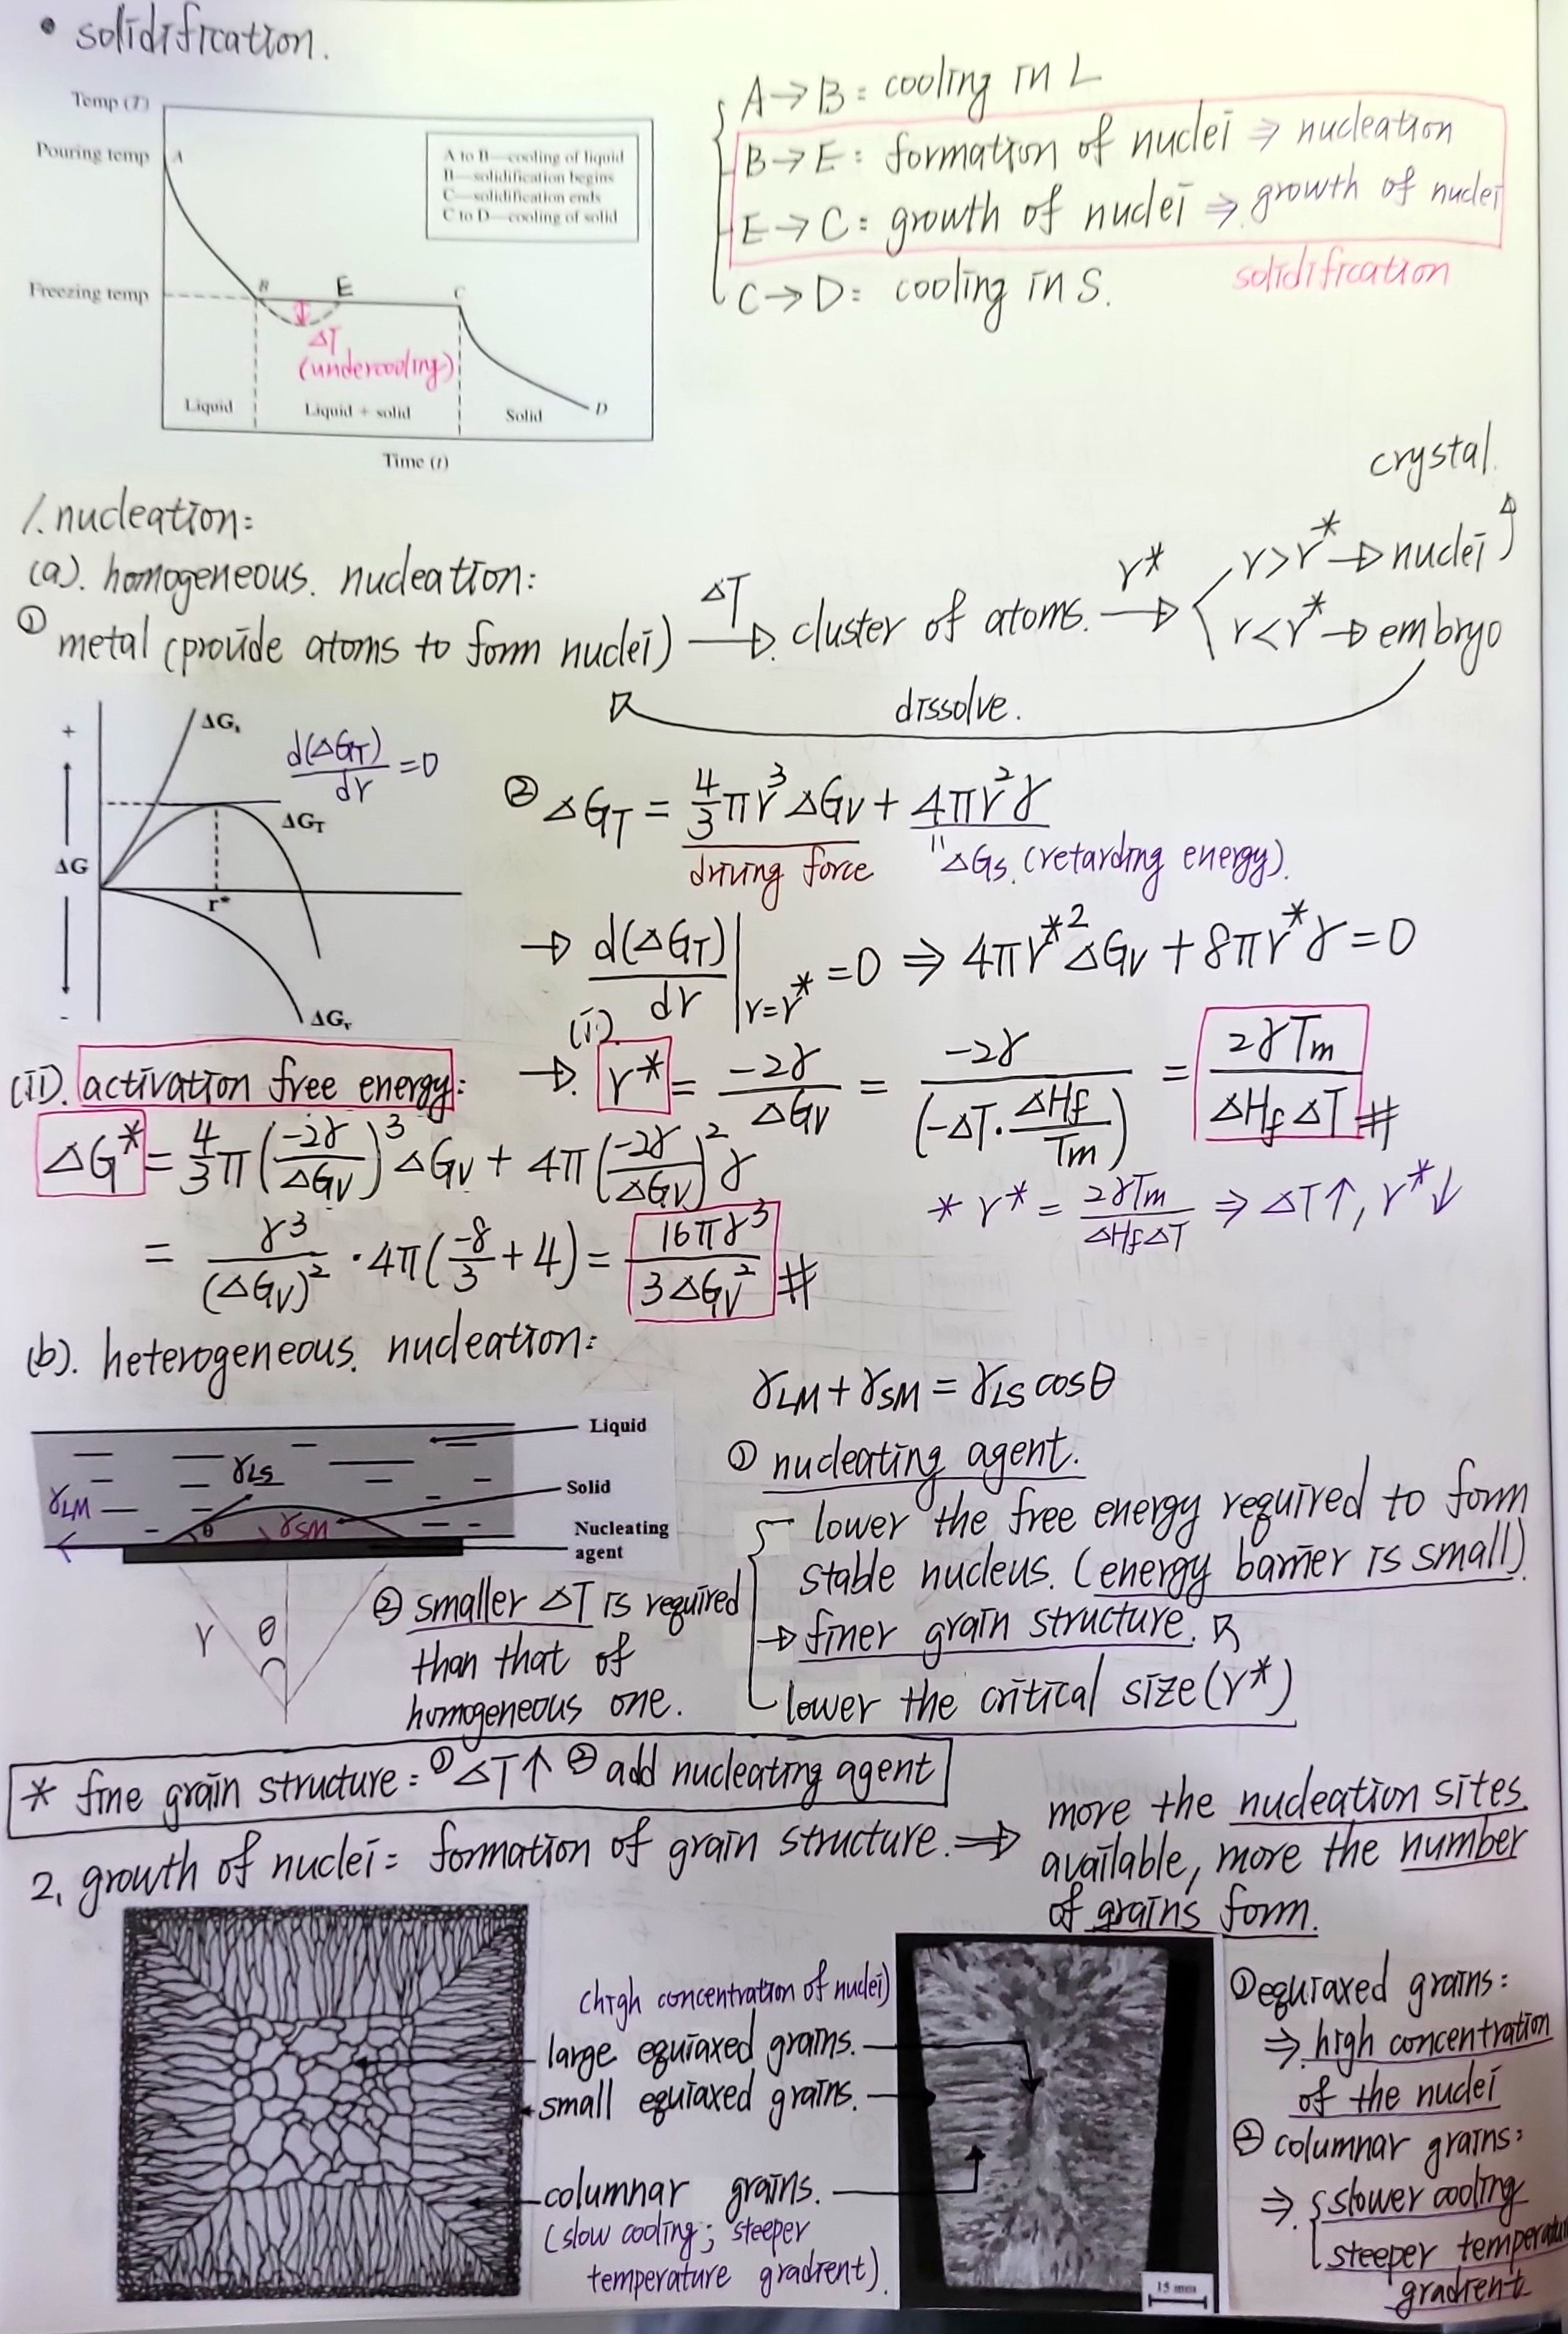 • solidification.
Temp (T)
Pouring temp
A
A to B—cooling of liquid
B—solidification begins
C—solidification ends
C to D—cooling of solid
Freezing temp
B
E
C
ΔT
(undercooling)
Liquid
Liquid + solid
Solid
D
Time (t)
A→B: cooling in L
B→E: formation of nuclei ⇒ nucleation
E→C: growth of nuclei ⇒ growth of nuclei
C→D: cooling in S.
solidification
1. nucleation:
(a). homogeneous. nucleation:
① metal (provide atoms to form nuclei) —ΔT→ cluster of atoms. —r*→
r>r* → nuclei
crystal.
r<r* → embryo
dissolve.
+
ΔG
-
ΔGs
d(ΔGT)/dr = 0
ΔGT
r*
ΔGv
② ΔGT = 4/3 πr³ ΔGv + 4πr²γ
driving force
" ΔGs. (retarding energy).
→ d(ΔGT)/dr |r=r* = 0 ⇒ 4πr*² ΔGv + 8πr*γ = 0
(i). → r* = -2γ/ΔGv = -2γ/(-ΔT·ΔHf/Tm) = 2γTm/ΔHfΔT #
* r* = 2γTm/ΔHfΔT ⇒ ΔT↑, r*↓
(ii). activation free energy:
ΔG* = 4/3 π(-2γ/ΔGv)³ ΔGv + 4π(-2γ/ΔGv)² γ
= γ³/(ΔGv)² · 4π(-8/3 + 4) = 16πγ³/3ΔGv² #
(b). heterogeneous. nucleation:
Liquid
Solid
Nucleating
agent
γLM
γLS
θ
γSM
r
θ
γLM + γSM = γLS cosθ
① nucleating agent.
lower the free energy required to form
stable nucleus. (energy barrier is small)
→ finer grain structure.
lower the critical size (r*)
② smaller ΔT is required
than that of
homogeneous one.
* fine grain structure: ① ΔT↑ ② add nucleating agent
2. growth of nuclei = formation of grain structure. ⇒
more the nucleation sites
available, more the number
of grains form.
(high concentration of nuclei)
large equiaxed grains.
small equiaxed grains.
columnar grains.
(slow cooling; steeper
temperature gradient).
15 mm
① equiaxed grains:
⇒ high concentration
of the nuclei
② columnar grains:
⇒ slower cooling
steeper temperatu
gradient